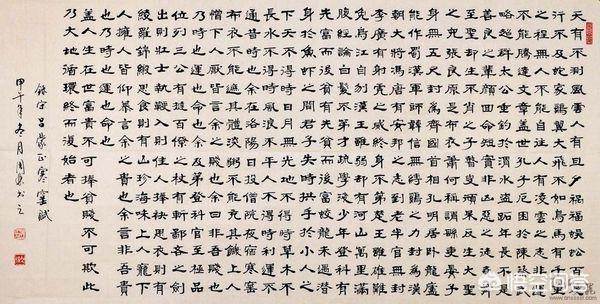 天有不測風雲人有旦夕禍福蜈蚣百足
汗不及蛇家鷄翼大飛不如鳥馬有千里
之程無人不能自往人有凌雲之志非運
不能騰達文章蓋世孔子厄困於陳蔡武
略超群太公垂釣於渭水盜跖年長不是
善良之輩顏回命短實非凶惡之徒堯舜
至聖却生不肖之子瞽叟頑呆反生大聖
之兒張良原是布衣蕭何稱謂縣吏晏子
身無五尺封為齊國首相孔明居臥龍廬
能作蜀漢軍師韓信無縛鷄之力封為漢
朝大將馮唐有安邦之志到老半官無封
李廣有射虎之威終身不第楚王雖雄難
免烏江自刎漢王雖弱却有江山萬里滿
腹經綸白髮不第才疏學淺少年登科有
先富而後貧有先貧而後富蛟龍未遇潛
身於魚蝦之間君子失時拱手於小人之
下天不得時日月無光地不得時草木不
長水不得時風浪不平人不得時利運不
通昔時也余在洛陽日投僧院夜宿寒窑
布衣不能遮其體淡粥不能充其饑上人
憎下人厭皆言余之賤也余曰非吾賤也
乃時也運也命也余及第登科官至極品
位列三公有撻百僚之杖有斬鄙吝之劍
出則壯士執鞭入則佳人捧袂思衣則有
綾羅錦緞思食則有山珍海味上人寵下
人擁人皆仰慕言余之貴也余言非吾貴
也乃時也運也命也
蓋人生在世富貴不可捧貧賤不可欺此
乃天地循環終而復始者也
錄宋呂蒙正寒窑賦
甲午年冬月周書之
悟空问答